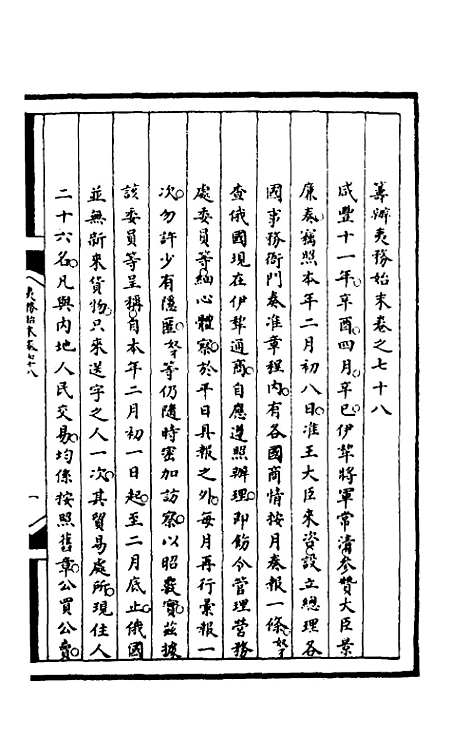 籌辦夷務始末卷之七十八
咸豐十一年辛酉四月辛巳伊犂將軍常清參贊大臣景
廉奏竊照本年二月初八日准王大臣來咨設立總理各
國事務衙門奏准章程内有各國商情按月奏報一條奴才
查俄國現在伊犂通商自應遵照辦理即飭令管理營務
處委員等細心體察於平日具報之外每月再行彙報一
次勿許少有隱匿奴才等仍隨時密加訪察以昭覈實茲據
該委員等呈稱自本年二月初一日起至二月底止俄國
並無新來貨物只來送字之人一次其貿易處所現住人
二十六名凡與内地人民交易均係按照舊章公買公賣
夷務始末卷七十八
一